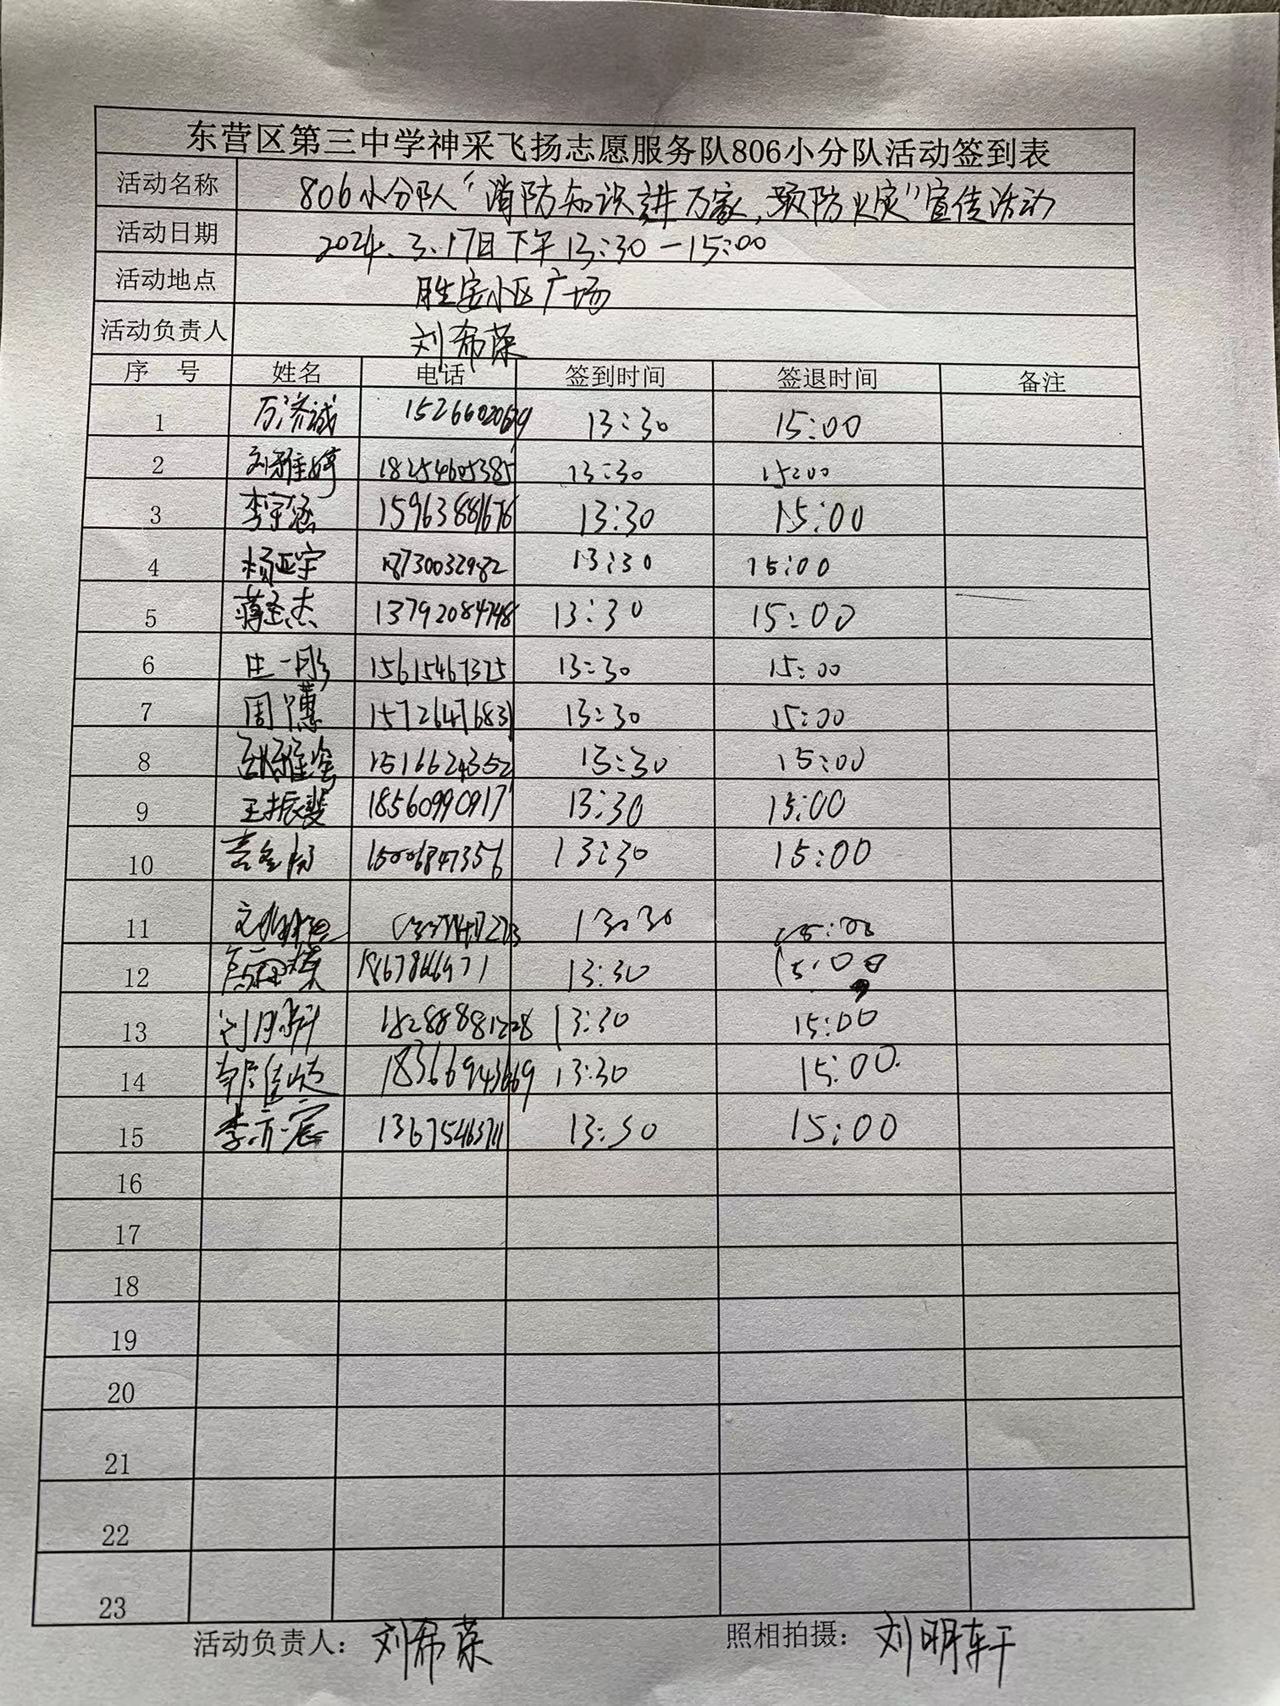 东营区第三中学神采飞扬志愿服务队806小分队活动签到表
活动名称 806小分队“消防知识进万家,预防火灾”宣传活动
活动日期 2024.3.17日下午13:30—15:00
活动地点 胜宏小区广场
活动负责人 刘希荣
序号 姓名 电话 签到时间 签退时间 备注
1 万济诚 13:30 15:00
2 刘雅婷 18254605385 13:30 15:00
3 李宇涵 15963881676 13:30 15:00
4 杨亚宇 18730032982 13:30 15:00
5 蒋圣杰 13792084748 13:30 15:00
6 庄一彤 15615467375 13:30 15:00
7 周 15726476831 13:30 15:00
8 15166243352 13:30 15:00
9 王振斐 18560990917 13:30 15:00
10 15006847356 13:30 15:00
11 13:30 15:00
12 13:30 15:00
13 刘明轩 18288881228 13:30 15:00
14 18366943669 13:30 15:00.
15 李亦宸 13675463711 13:30 15:00
16
17
18
19
20
21
22
23
活动负责人: 刘希荣 照相拍摄: 刘明轩